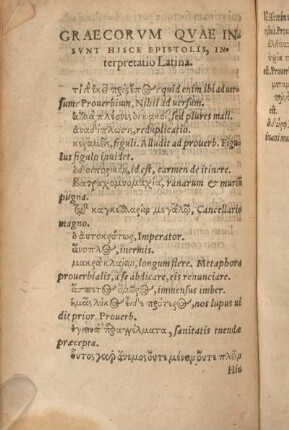 GRAECORVM QVAE IN-
SVNT HISCE EPISTOLIS, IN-
terpretatio Latina.
quid enim ibi aduer
sum? Prouerbium, Nihil ad versum.
sed plures mali.
ἀναδίπλωσις, reduplicatio.
κεραμεῖς, figuli. Alludit ad prouerb. Figu
lus figulo inuidet.
ὁδοιπορικόν, id est, carmen de itinere.
Βατραχομυομαχία, ranarum & murium
pugna.
μεγάλῳ, Cancellario
magno.
ὁ αὐτοκράτωρ, Imperator.
ἄνοπλος, inermis.
μακρὰ κλαίειν, longum flere. Metaphora
prouerbialis, à se abdicare, eis renunciare.
ὄμβρος, immensus imber.
nos lupus vi
dit prior. Prouerb.
παραγγέλματα, sanitatis tuendæ
præcepta.
οὗτος γὰρ ἄνεμος οὔτε μένειν οὔτε πλεῖν
Hic